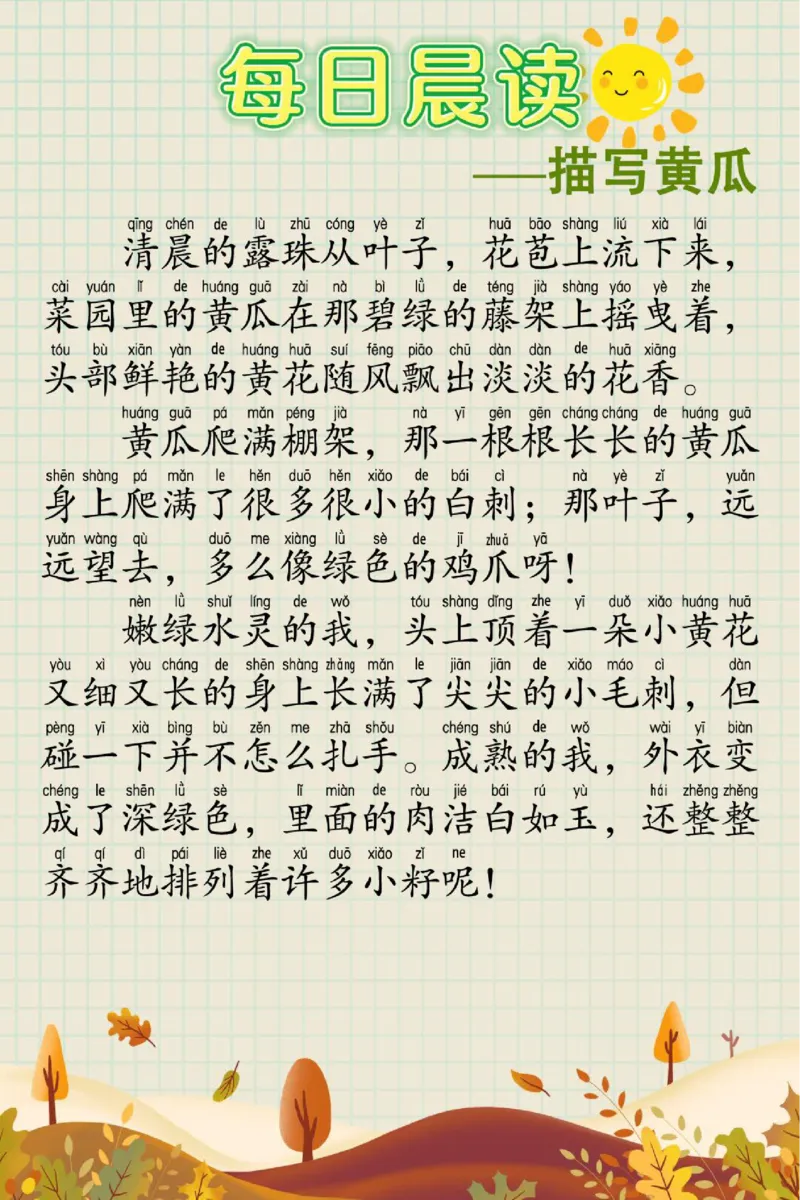 每日晨读
——描写黄瓜
qīng chén de lù zhū cóng yè zǐ huā bāo shàng liú xià lái
清晨的露珠从叶子，花苞上流下来，
cài yuán lǐ de huáng guā zài nà bì lǜ de téng jià shàng yáo yè zhe
菜园里的黄瓜在那碧绿的藤架上摇曳着，
tóu bù xiān yàn de huáng huā suí fēng piāo chū dàn dàn de huā xiāng
头部鲜艳的黄花随风飘出淡淡的花香。
huáng guā pá mǎn péng jià nà yī gēn gēn cháng cháng de huáng guā
黄瓜爬满棚架，那一根根长长的黄瓜
shēn shàng pá mǎn le hěn duō hěn xiǎo de bái cì nà yè zǐ yuǎn
身上爬满了很多很小的白刺；那叶子，远
yuǎn wàng qù duō me xiàng lǜ sè de jī zhuǎ yā
远望去，多么像绿色的鸡爪呀！
nèn lǜ shuǐ líng de wǒ tóu shàng dǐng zhe yī duǒ xiǎo huáng huā
嫩绿水灵的我，头上顶着一朵小黄花
yòu xì yòu cháng de shēn shàng zhǎng mǎn le jiān jiān de xiǎo máo cì dàn
又细又长的身上长满了尖尖的小毛刺，但
pèng yī xià bìng bù zěn me zhā shǒu chéng shú de wǒ wài yī biàn
碰一下并不怎么扎手。成熟的我，外衣变
chéng le shēn lǜ sè lǐ miàn de ròu jié bái rú yù hái zhěng zhěng
成了深绿色，里面的肉洁白如玉，还整整
qí qí dì pái liè zhe xǔ duō xiǎo zǐ ne
齐齐地排列着许多小籽呢！